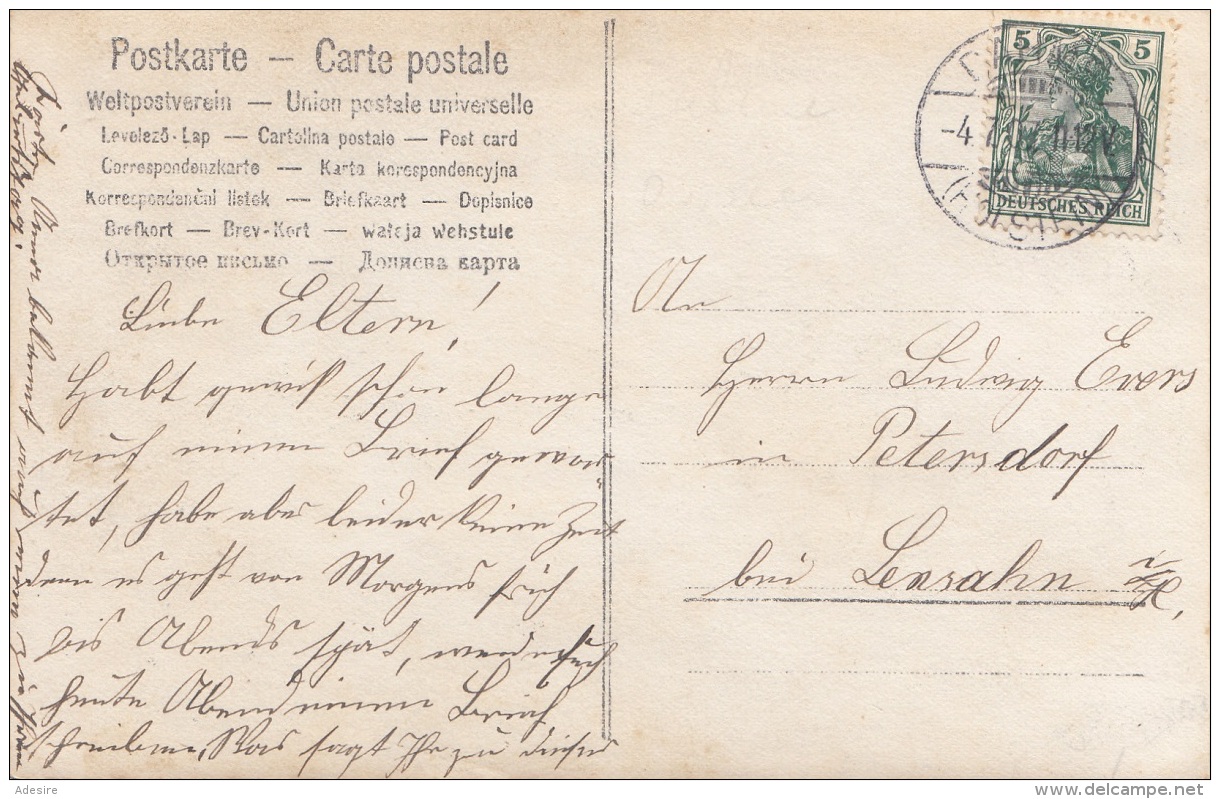 Postkarte — Carte postale
Weltpostverein — Union postale universelle
Levelező-Lap — Cartolina postale — Post card
Correspondenzkarte — Karta korespondencyjna
Korrespondenční listek — Briefkaart — Dopisnice
Brefkort — Brev-Kort — waleja wehstule
Открытое письмо — Дописна карта
Liebe Eltern!
Habt gewiß schon lange
auf einen Brief gewar
tet, habe aber leider keine Zeit
denn es geht von Morgens früh
bis Abends spät, werde
heute Abend einen Brief
schreiben, Was sagt Ihr zu dieser
5 5
DEUTSCHES REICH
-4. 11-12V.
(HOLSTEIN)
An
Herrn Ludwig Evers
in Petersdorf
bei Lensahn
i/H.
Adesire
delcampe.net